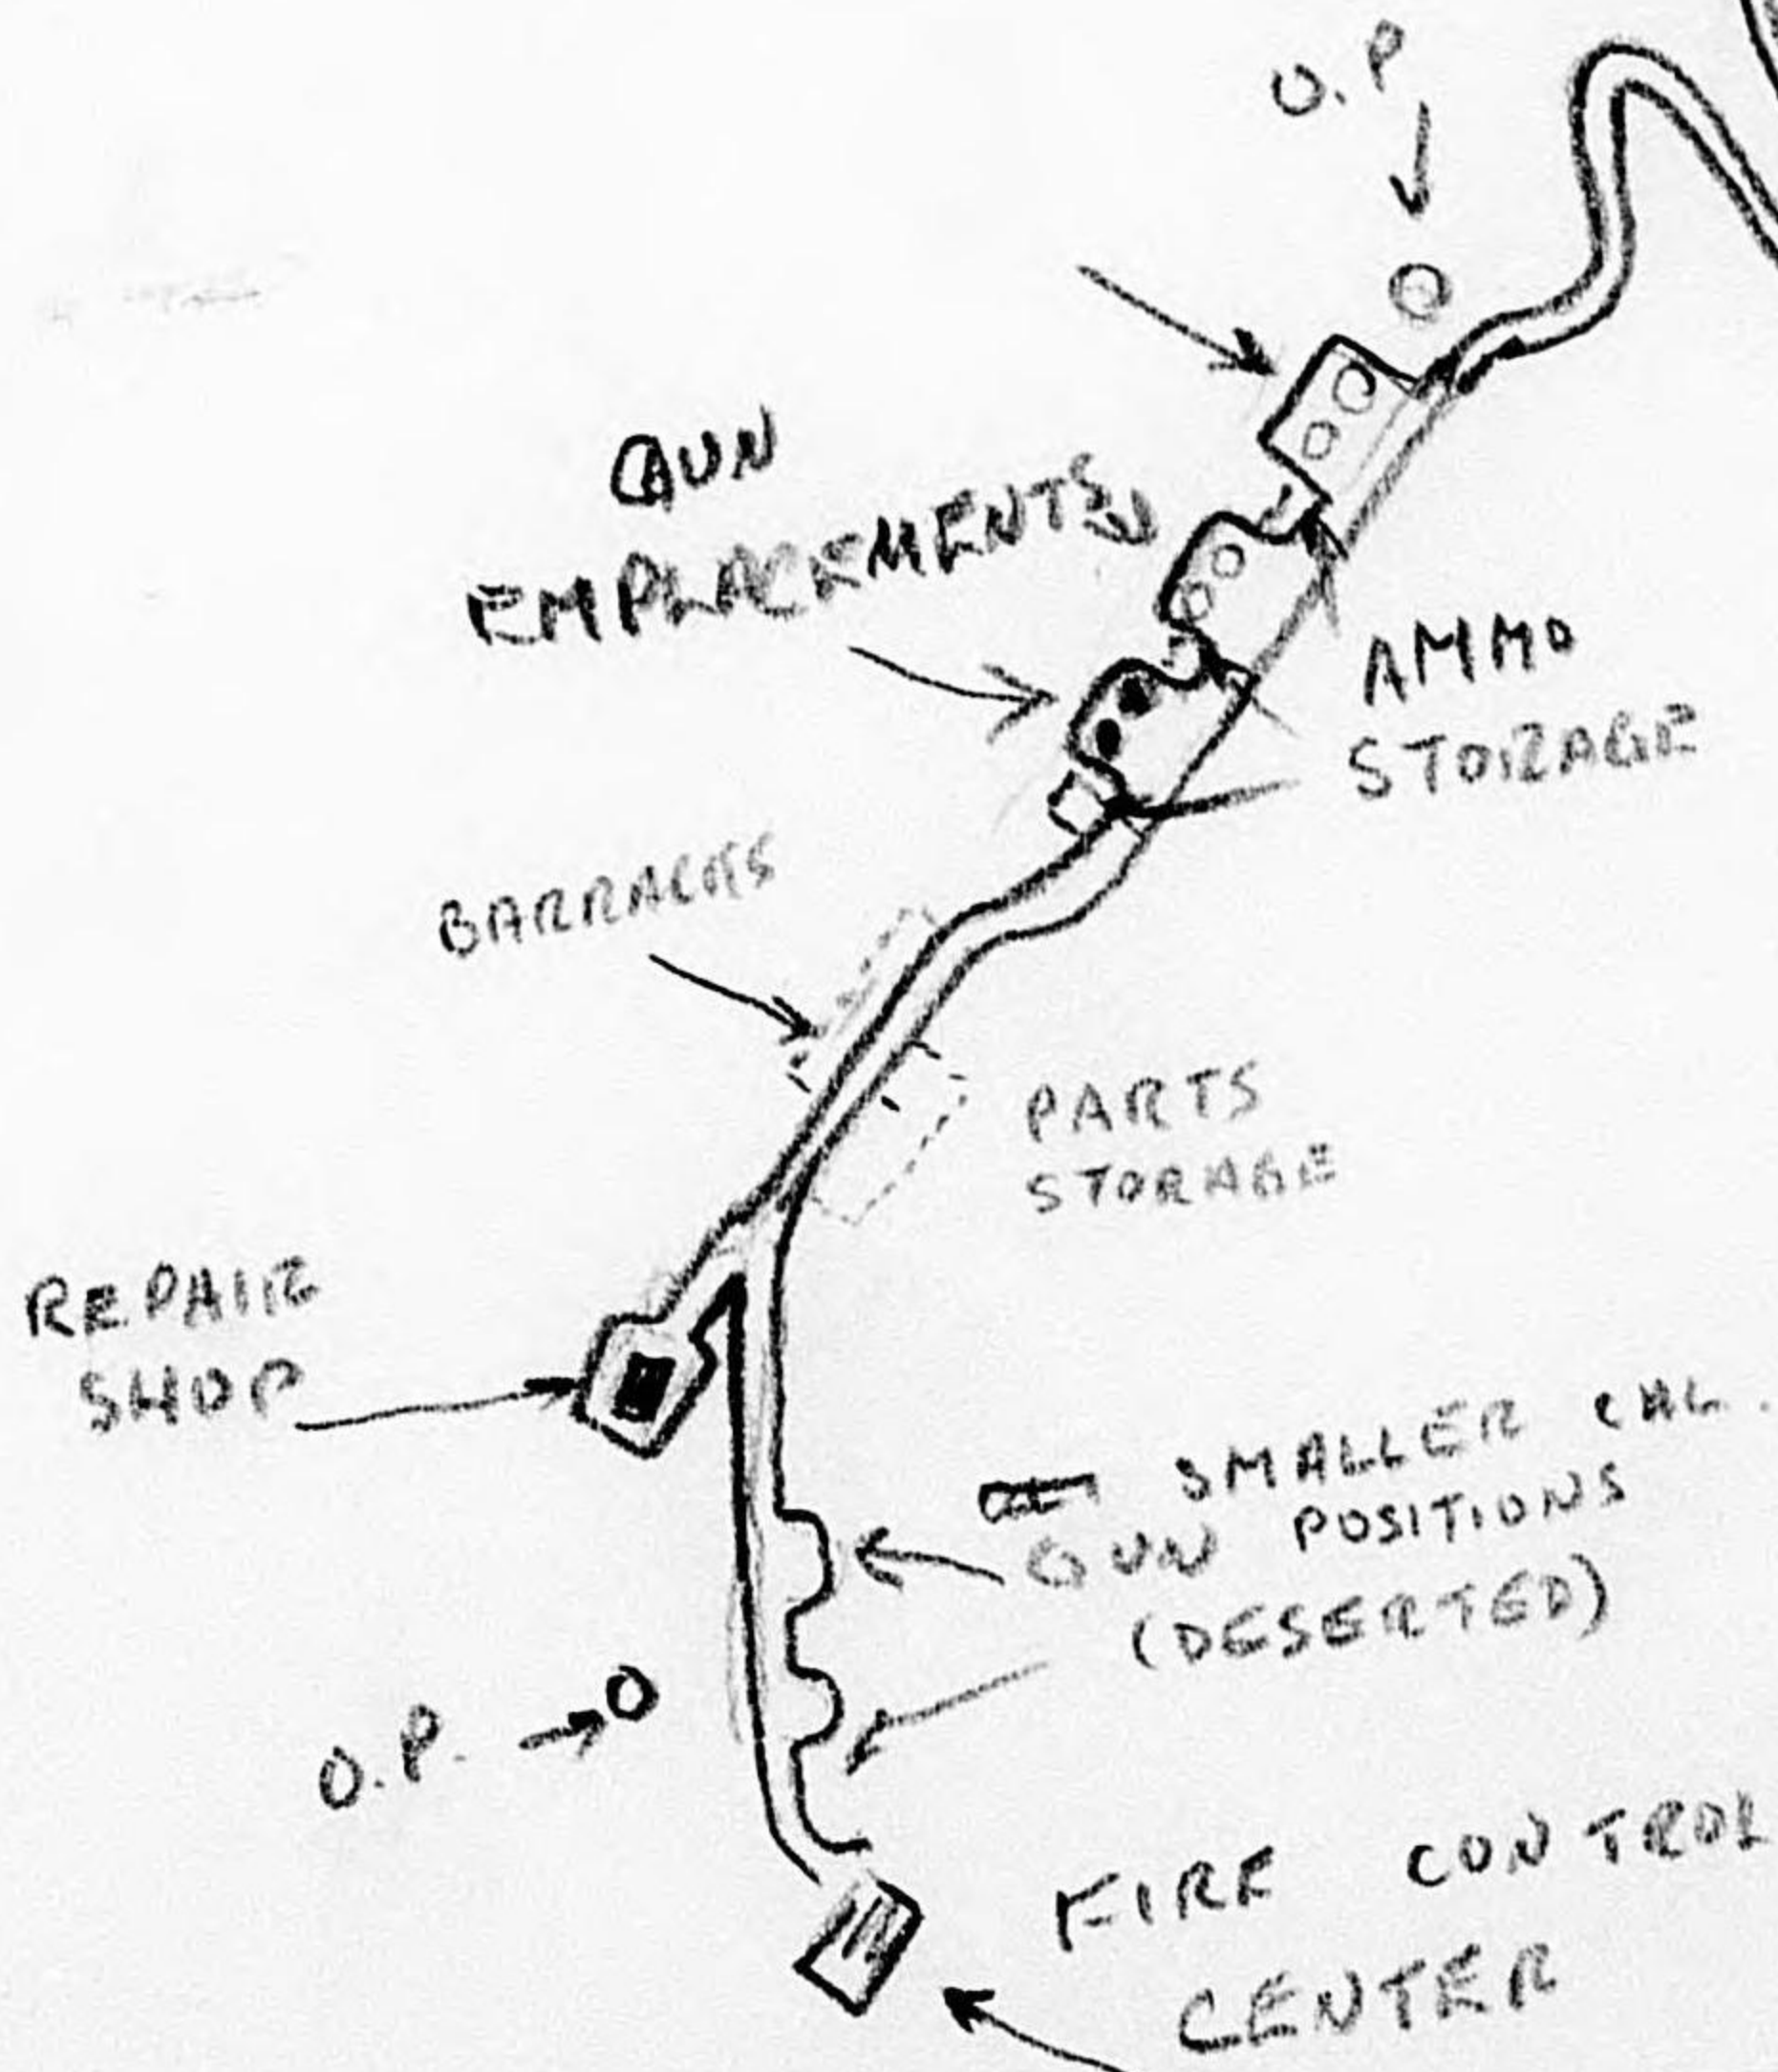 O. P
GUN
EMPLACEMENTS
AMMO
STORAGE
BARRACKS
PARTS
STORAGE
REPAIR
SHOP
SMALLER CAL.
GUN POSITIONS
(DESERTED)
O.P.
FIRE CONTROL
CENTER